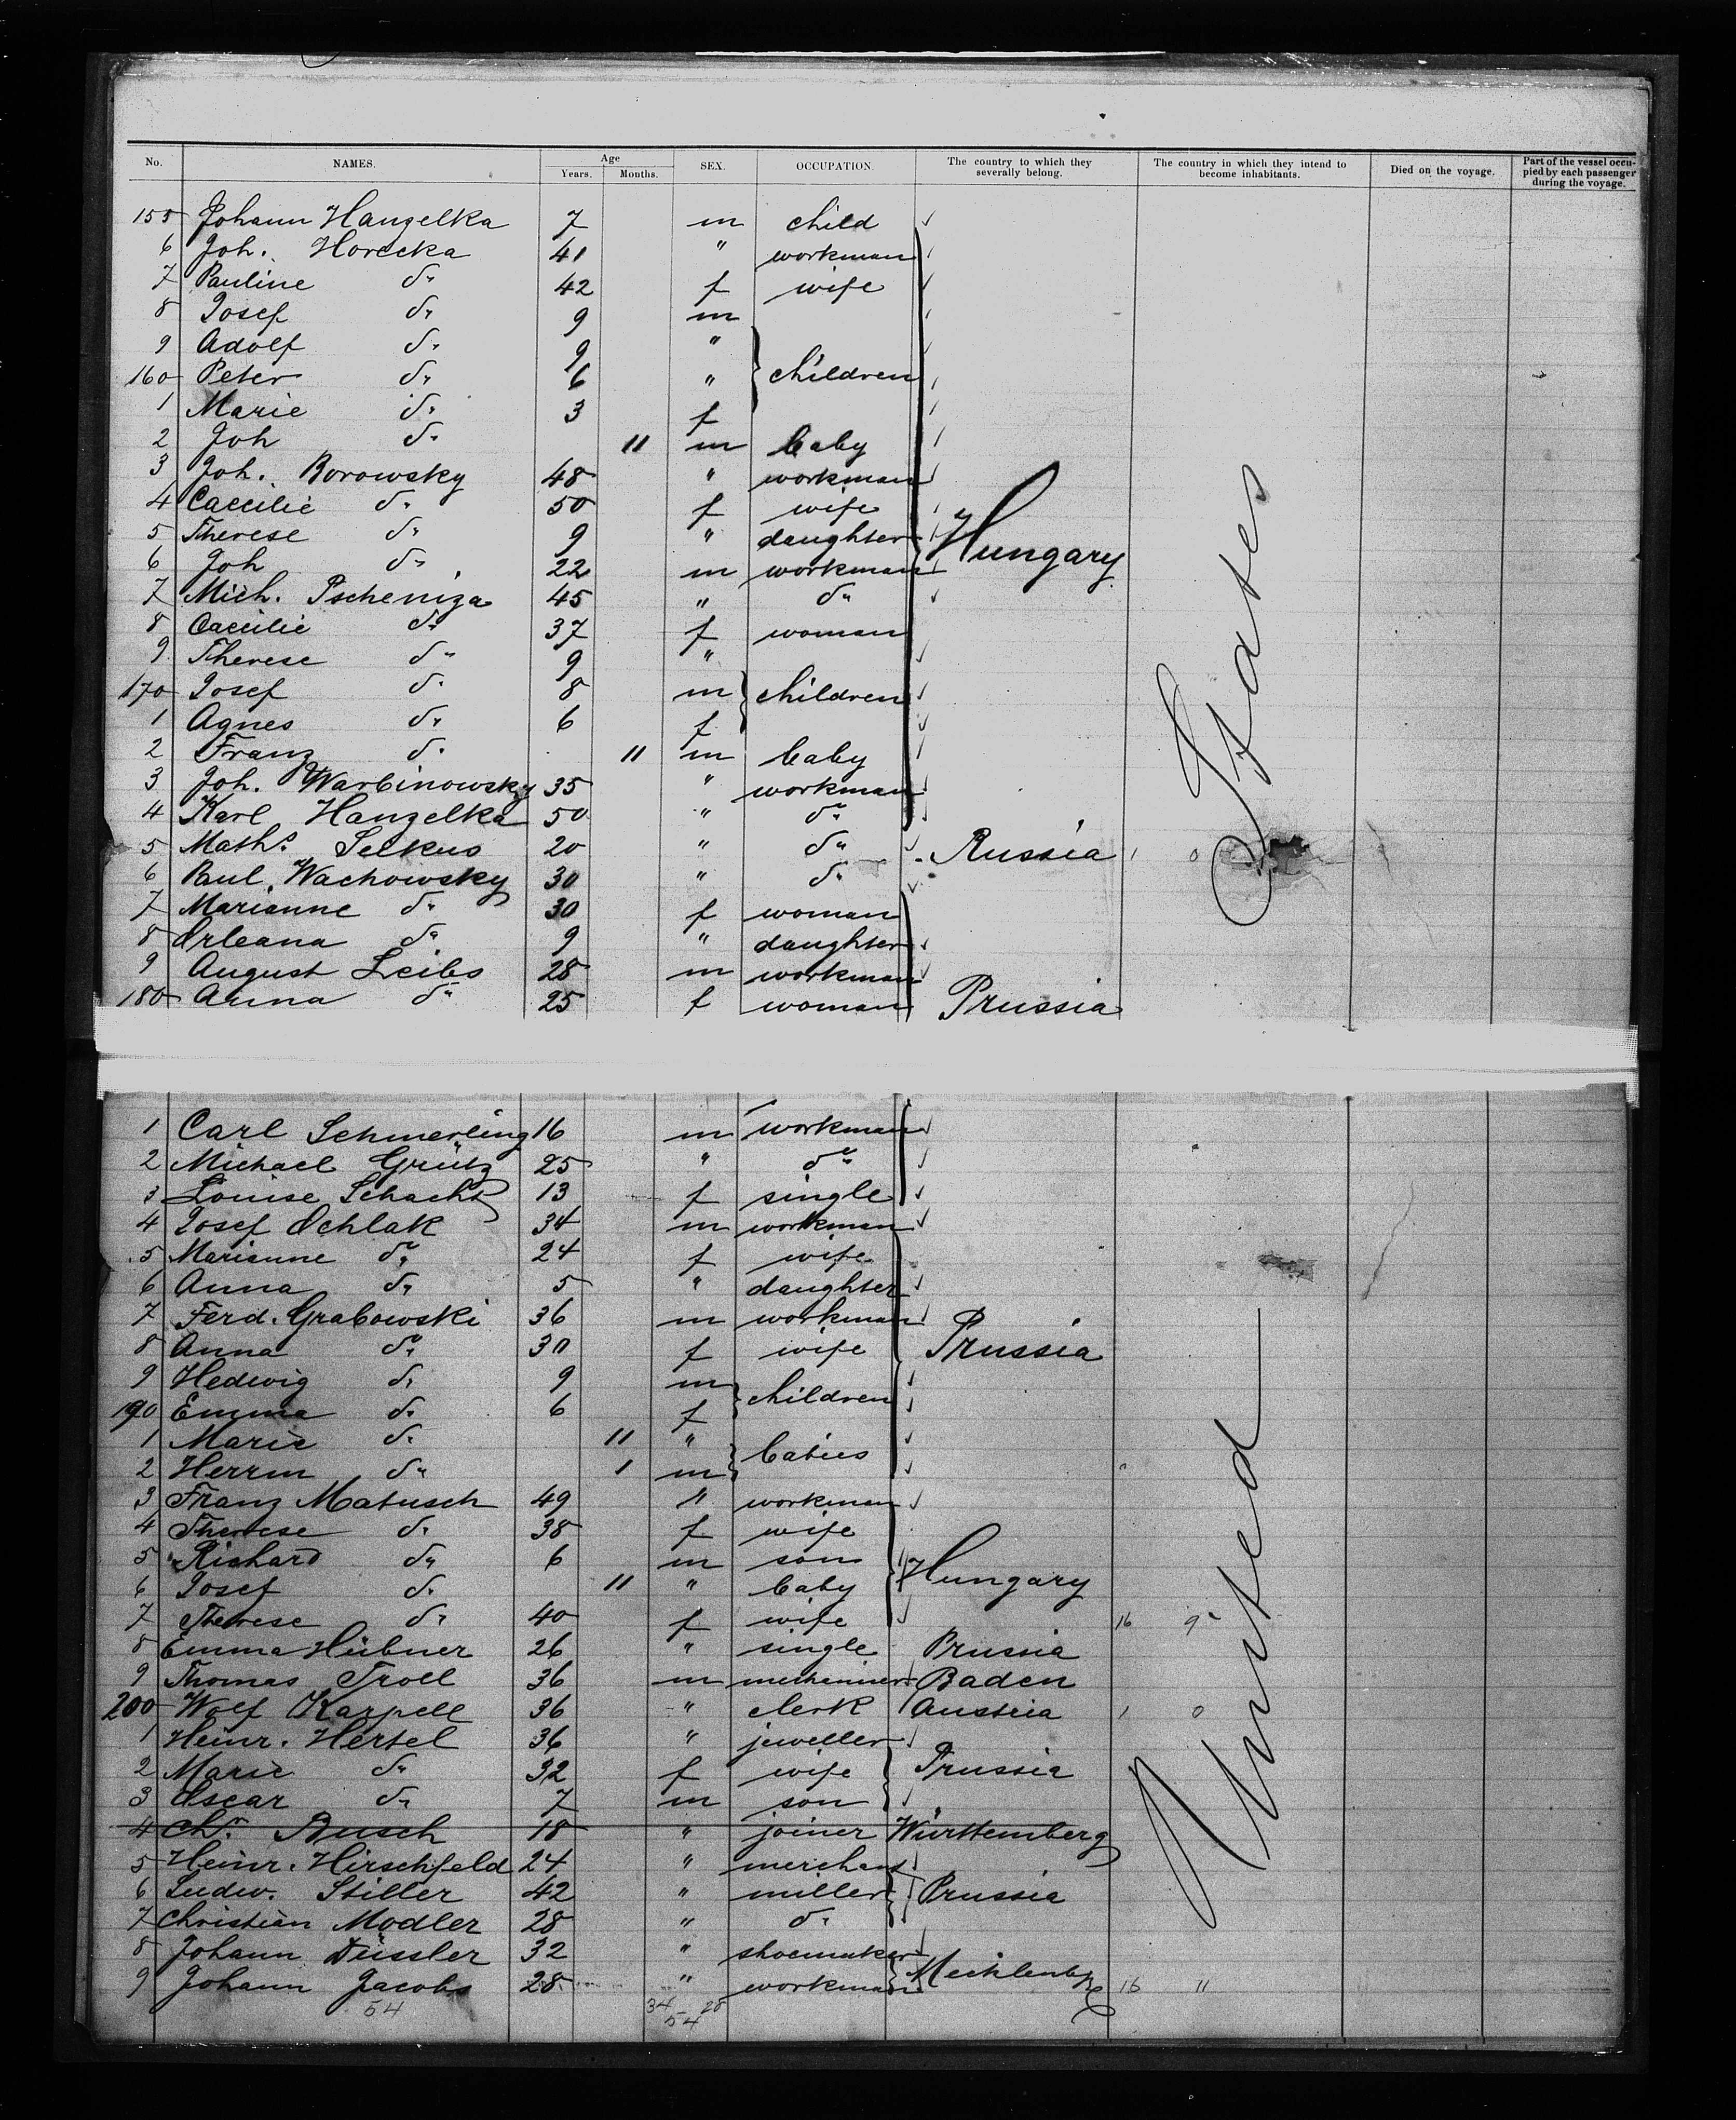 No. NAMES. Age Years. Months. SEX. OCCUPATION. The country to which they severally belong. The country in which they intend to become inhabitants. Died on the voyage. Part of the vessel occupied by each passenger during the voyage.
155 Johann Hanzelka 7 m child
6 Joh. Horecka 41 " workman
7 Pauline do 42 f wife
8 Josef do 9 m
9 Adolf do 9 "
160 Peter do 6 " children
1 Marie do 3 f
2 Joh do 11 m baby
3 Joh. Borowsky 48 " workman
4 Caecilie do 50 f wife
5 Therese do 9 " daughter Hungary
6 Joh do 22 m workman
7 Mich. Pscheniza 45 " do
8 Caecilie do 37 f woman
9 Therese do 9 "
170 Josef do 8 m children
1 Agnes do 6 f
2 Franz do 11 m baby
3 Joh. Warbinowsky 35 " workman
4 Karl Hanzelka 50 " do
5 Maths. Selkus 20 " do Russia 1 0
6 Paul Wachowsky 30 " do
7 Marianne do 30 f woman
8 Orleana do 9 " daughter
9 August Leibs 28 m workman
180 Anna do 25 f woman Prussia
1 Carl Schmerling 16 m workman
2 Michael Grütz 25 " do
3 Louise Schacht 13 f single
4 Josef Ochlak 34 m workman
5 Marianne do 24 f wife
6 Anna do 5 " daughter
7 Ferd. Grabowski 36 m workman
8 Anna do 30 f wife Prussia
9 Hedwig do 9 m children
190 Emma do 6 f
1 Marie do 11 " babies
2 Herrm do 1 m
3 Franz Matusch 49 " workman
4 Therese do 38 f wife
5 Richard do 6 m son Hungary
6 Josef do 11 " baby
7 Therese do 40 f wife 16 9
8 Emma Hübner 26 " single Prussia
9 Thomas Troll 36 m Baden
200 Wolf Karpell 36 " clerk Austria 1 0
1 Heinr. Hertel 36 " jeweller
2 Marie do 32 f wife Prussia
3 Oscar do 7 m son
4 Chr. Busch 18 " joiner Württemberg
5 Heinr. Hirschfeld 24 " merchant
6 Ludw. Stiller 42 " miller Prussia
7 Christian Modler 28 " do
8 Johann Düssler 32 " shoemaker
9 Johann Jacobs 28 " workman Mecklenbg 16 11
54 34 28 54
United States